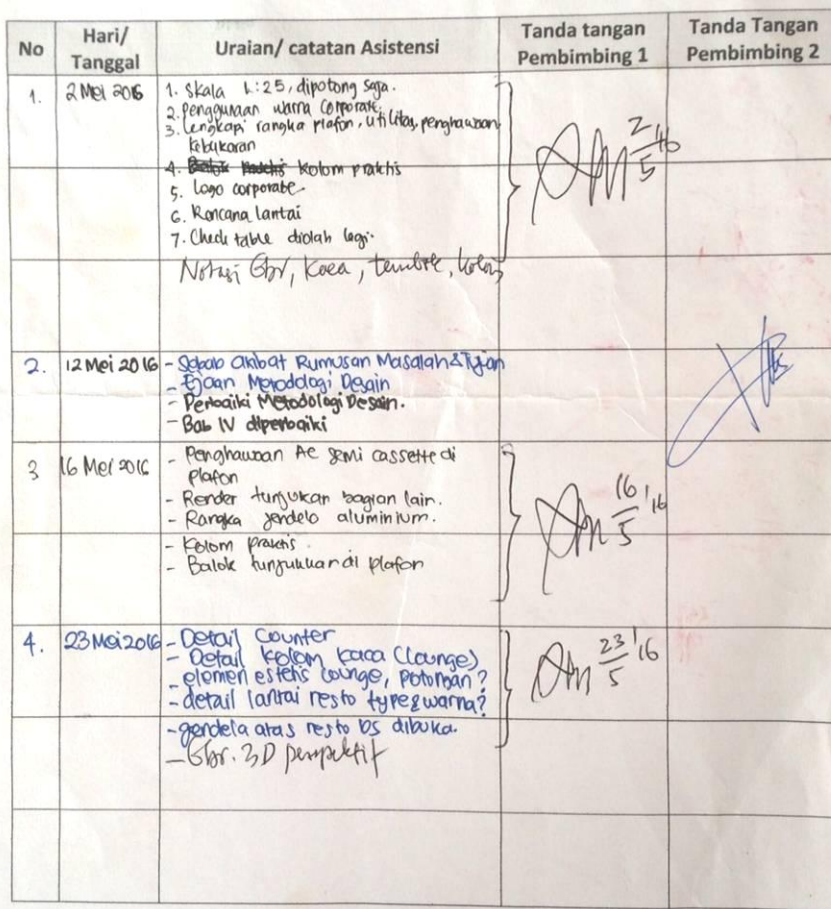 No
Hari/
Tanggal
Uraian/ catatan Asistensi
Tanda tangan
Pembimbing 1
Tanda Tangan
Pembimbing 2
1.
2 Mei 2016
1. Skala 1:25, dipotong saja.
2. Penggunaan warna corporate.
3. Lengkapi rangka plafon, utilitas, penghawaan
kebakaran
4. Kolom praktis
5. Logo corporate
6. Rencana lantai
7. Check table diolah lagi.
Notasi Gbr, kaca, tembok, kolom
2/5 16
2.
12 Mei 2016
- Sebab akibat Rumusan Masalah & Tujuan
- Ejaan Metodologi Desain
- Perbaiki Metodologi Desain.
- Bab IV diperbaiki
3
16 Mei 2016
- Penghawaan AC semi cassette di
plafon
- Render tunjukan bagian lain.
- Rangka jendela aluminium.
- Kolom praktis.
- Balok tunjukkan di plafon
16/5 '16
4.
23 Mei 2016
- Detail Counter
- Detail kolom kaca (lounge)
- elemen estetis lounge, potongan?
- detail lantai resto type & warna?
- jendela atas resto bs dibuka.
- Gbr. 3D perspektif
23/5 '16